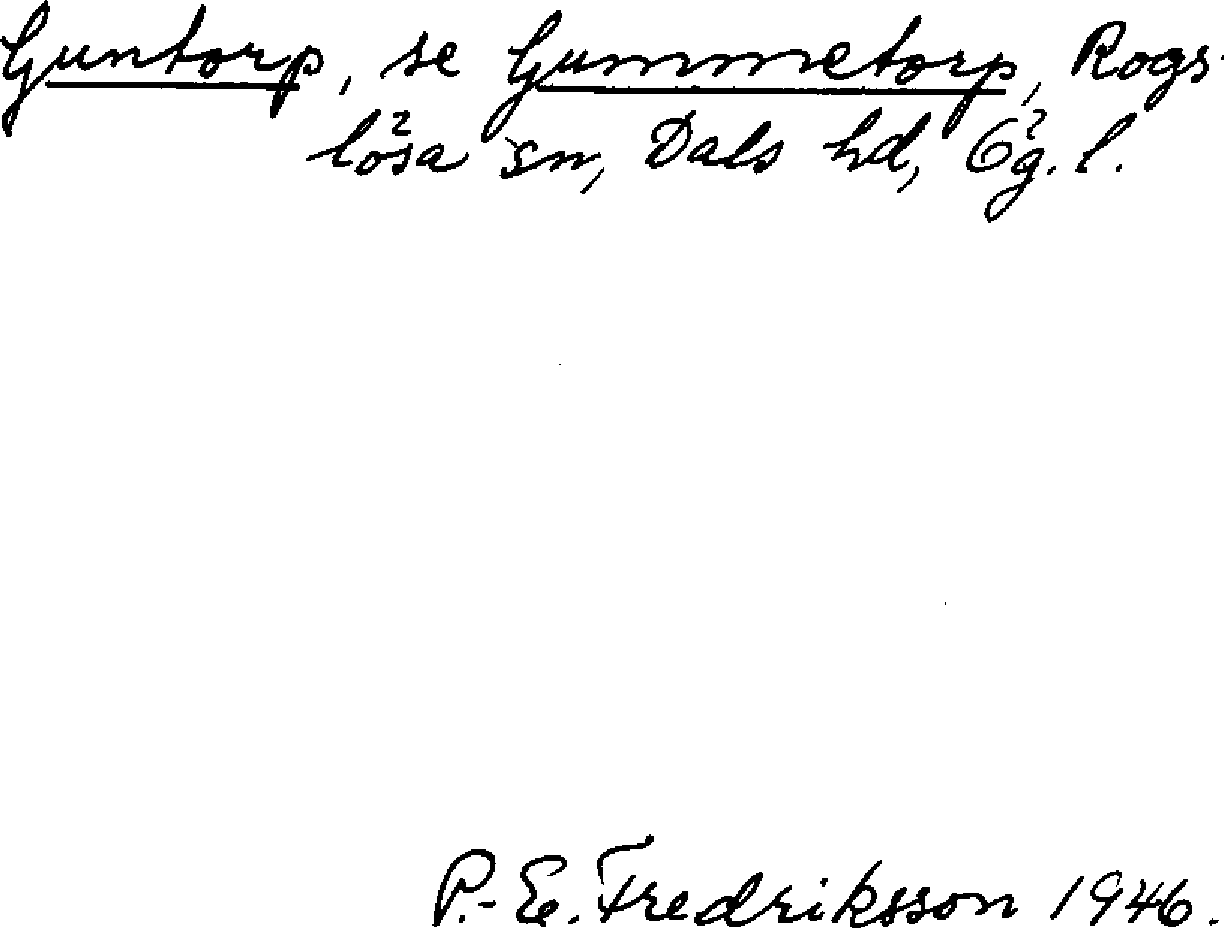 Guntorp, se Gummetorp, Rogs-
lösa sn, Dals hd, Ög. l.
P.-E. Fredriksson 1946.